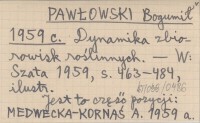 PAWŁOWSKI Bogumił
1959 c. Dynamika zbio-
rowisk roślinnych. — W:
Szata 1959, s. 463-484,
ilustr.
Jest to część pozycji:
MEDWECKA-KORNAŚ A. 1959 a.